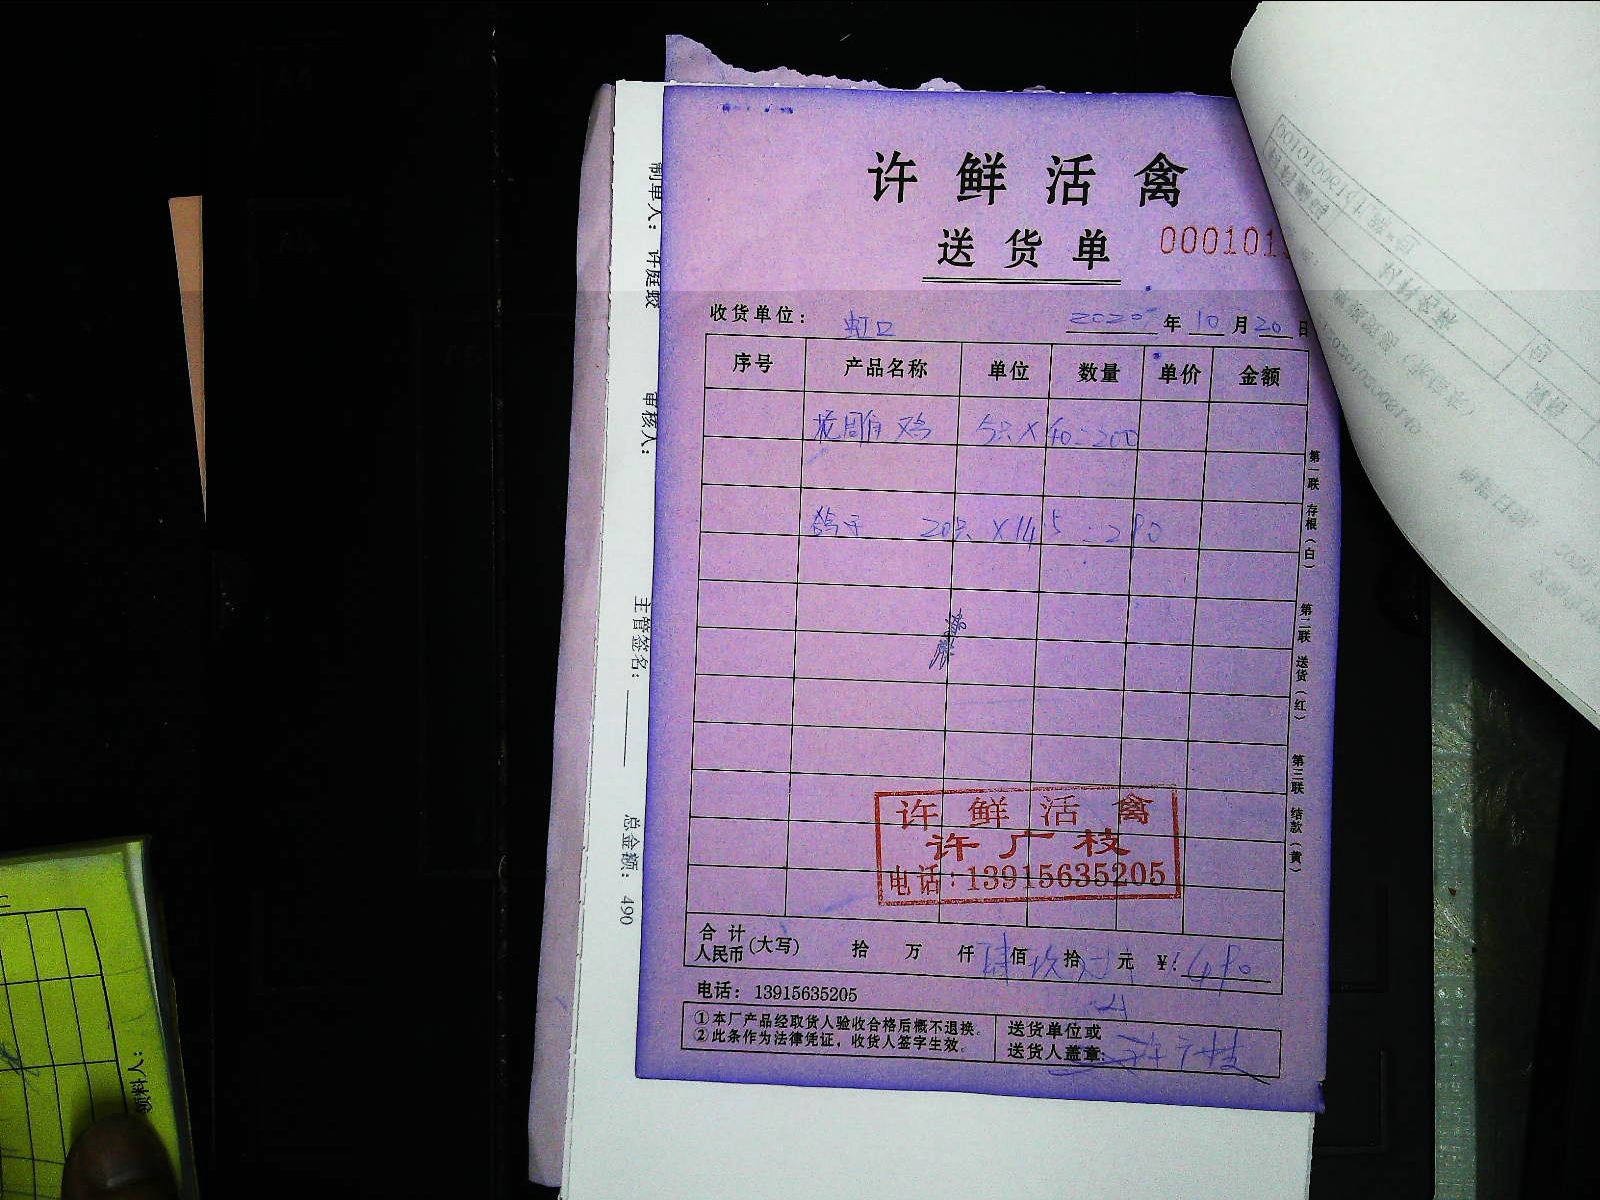 许鲜活禽
送货单 000101
收货单位： 虹口 2020年10月20日
序号 产品名称 单位 数量 单价 金额
花雕鸡 5只×40=200
鸽子 20只×14.5=290
许鲜活禽
许广枝
电话：13915635205
合计人民币(大写) 拾 万 仟 肆佰 玖拾 元 ¥：490
电话：13915635205
①本厂产品经取货人验收合格后概不退换。
②此条作为法律凭证，收货人签字生效。
送货单位或
送货人盖章： 许广枝
第一联 存根（白）
第二联 送货（红）
第三联 结款（黄）
制单人： 许庭
审核人：
主管签名：
总金额： 490
领料人：